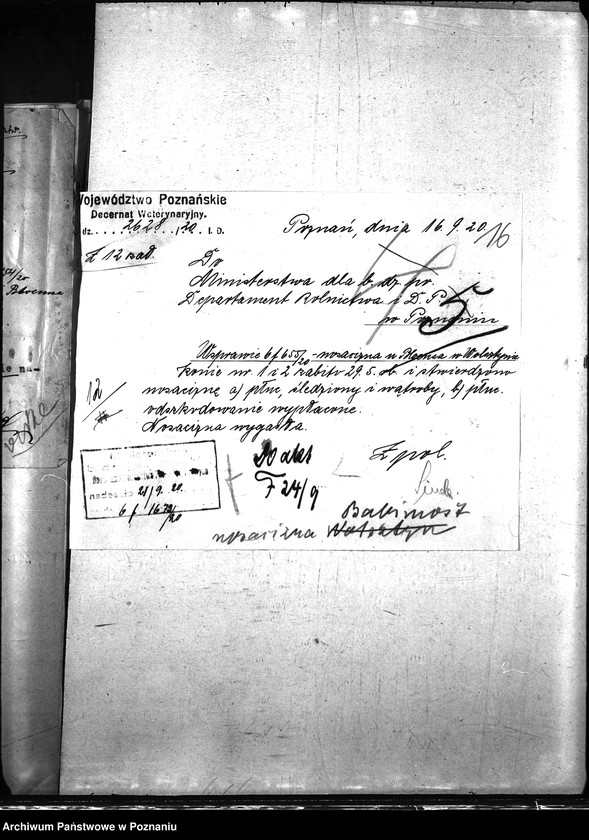 Województwo Poznańskie
Decernat Weterynaryjny.
dz. 2628/20. I. D.
Poznań, dnia 16. 9. 20.
16
Z 12 zał.
Do
Ministerstwa dla b. dz. pr.
Departament Rolnictwa i D. P.
w Poznaniu
5
W sprawie 6 f 655/20 - nosacizna u w Wolsztynie
konie nr 1 i 2 zabito 29. 5. ob. i stwierdzono
nosaciznę a) płuc, śledziony i wątroby, b) płuc.
odszkodowanie wypłacone.
Nosacizna wygasła.
12/
21/9. 20.
6 f 1673/20
Do akt
F 24/9
Z pol.
Babimost
nosacizna Wolsztyn
Archiwum Państwowe w Poznaniu